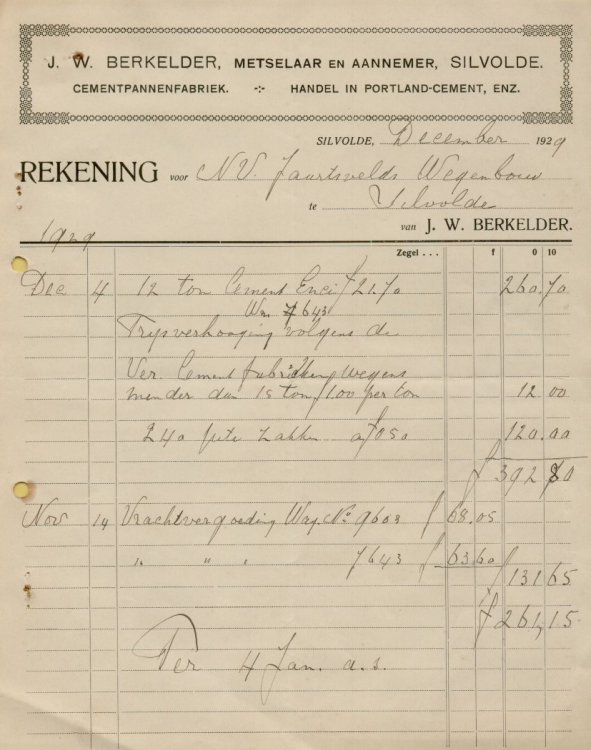 J. W. BERKELDER, METSELAAR EN AANNEMER, SILVOLDE.
CEMENTPANNENFABRIEK. HANDEL IN PORTLAND-CEMENT, ENZ.
SILVOLDE, December 1929
REKENING voor N.V. Wegenbouw
te Silvolde
van J. W. BERKELDER.
1929
Zegel . . . f 0 10
Dec 4 12 ton Cement Enci f 21.70 260.70
Wa. 7643
Prysverhooging volgens de
Ver. Cement fabrieken wegens
minder dan 15 ton f 100 per ton 12 00
240 jute zakken a f 050 120.00
f 392 80
Nov 14 Vrachtvergoeding Wag. No 9603 f 68.05
" " " 7643 f 63.60
f 131 65
f 261,15
Per 4 Jan. a.s.